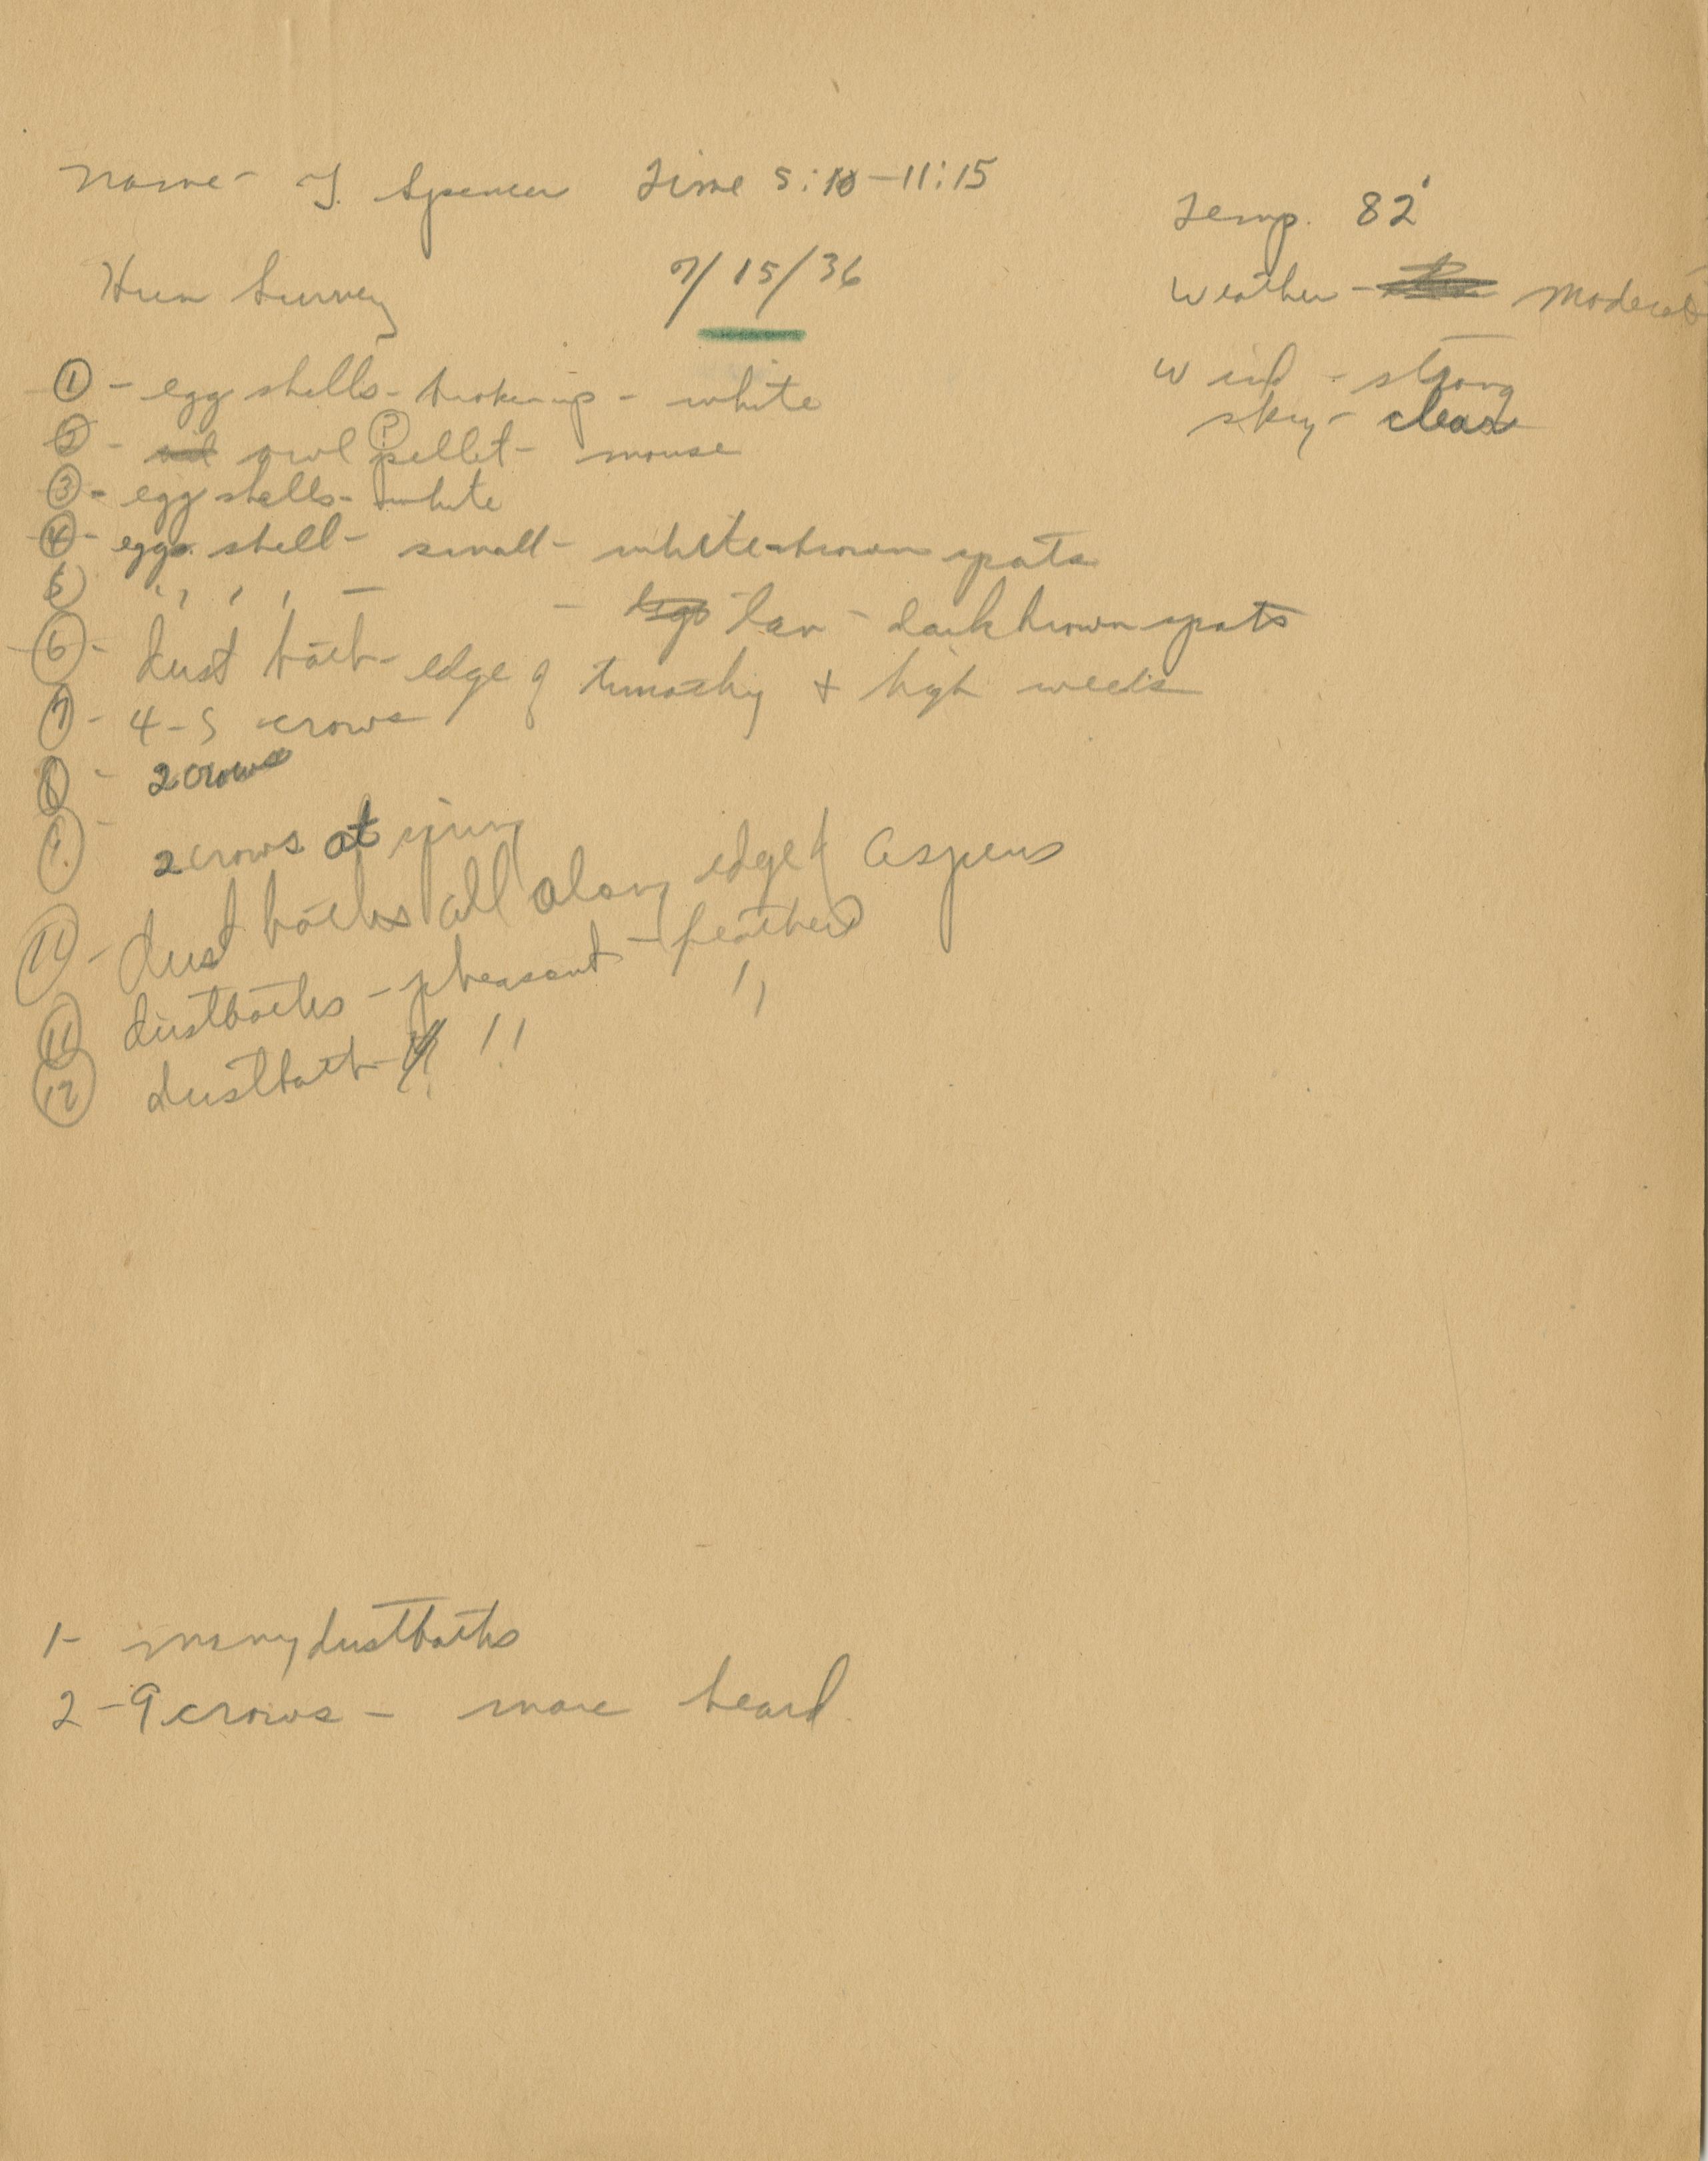 Name - J. Spencer Time 5:10 - 11:15
Temp. 82°
Hun Survey 7/15/36
Weather - Moderate
Wind - strong
sky - clear
① - egg shells - broken up - white
② - owl (?) pellet - mouse
③ - egg shells - white
④ - egg shell - small - white - brown spots
⑤ " " - - tan - dark brown spots
⑥ - dust bath - edge of timothy + high weeds
⑦ - 4-5 crows
⑧ - 2 crows
⑨ - 2 crows at spring
⑪ - dust baths all along edge of Aspens
⑪ dustbaths - pheasant - feathers
⑫ dustbath - " "
1 - many dustbaths
2 - 9 crows - more heard